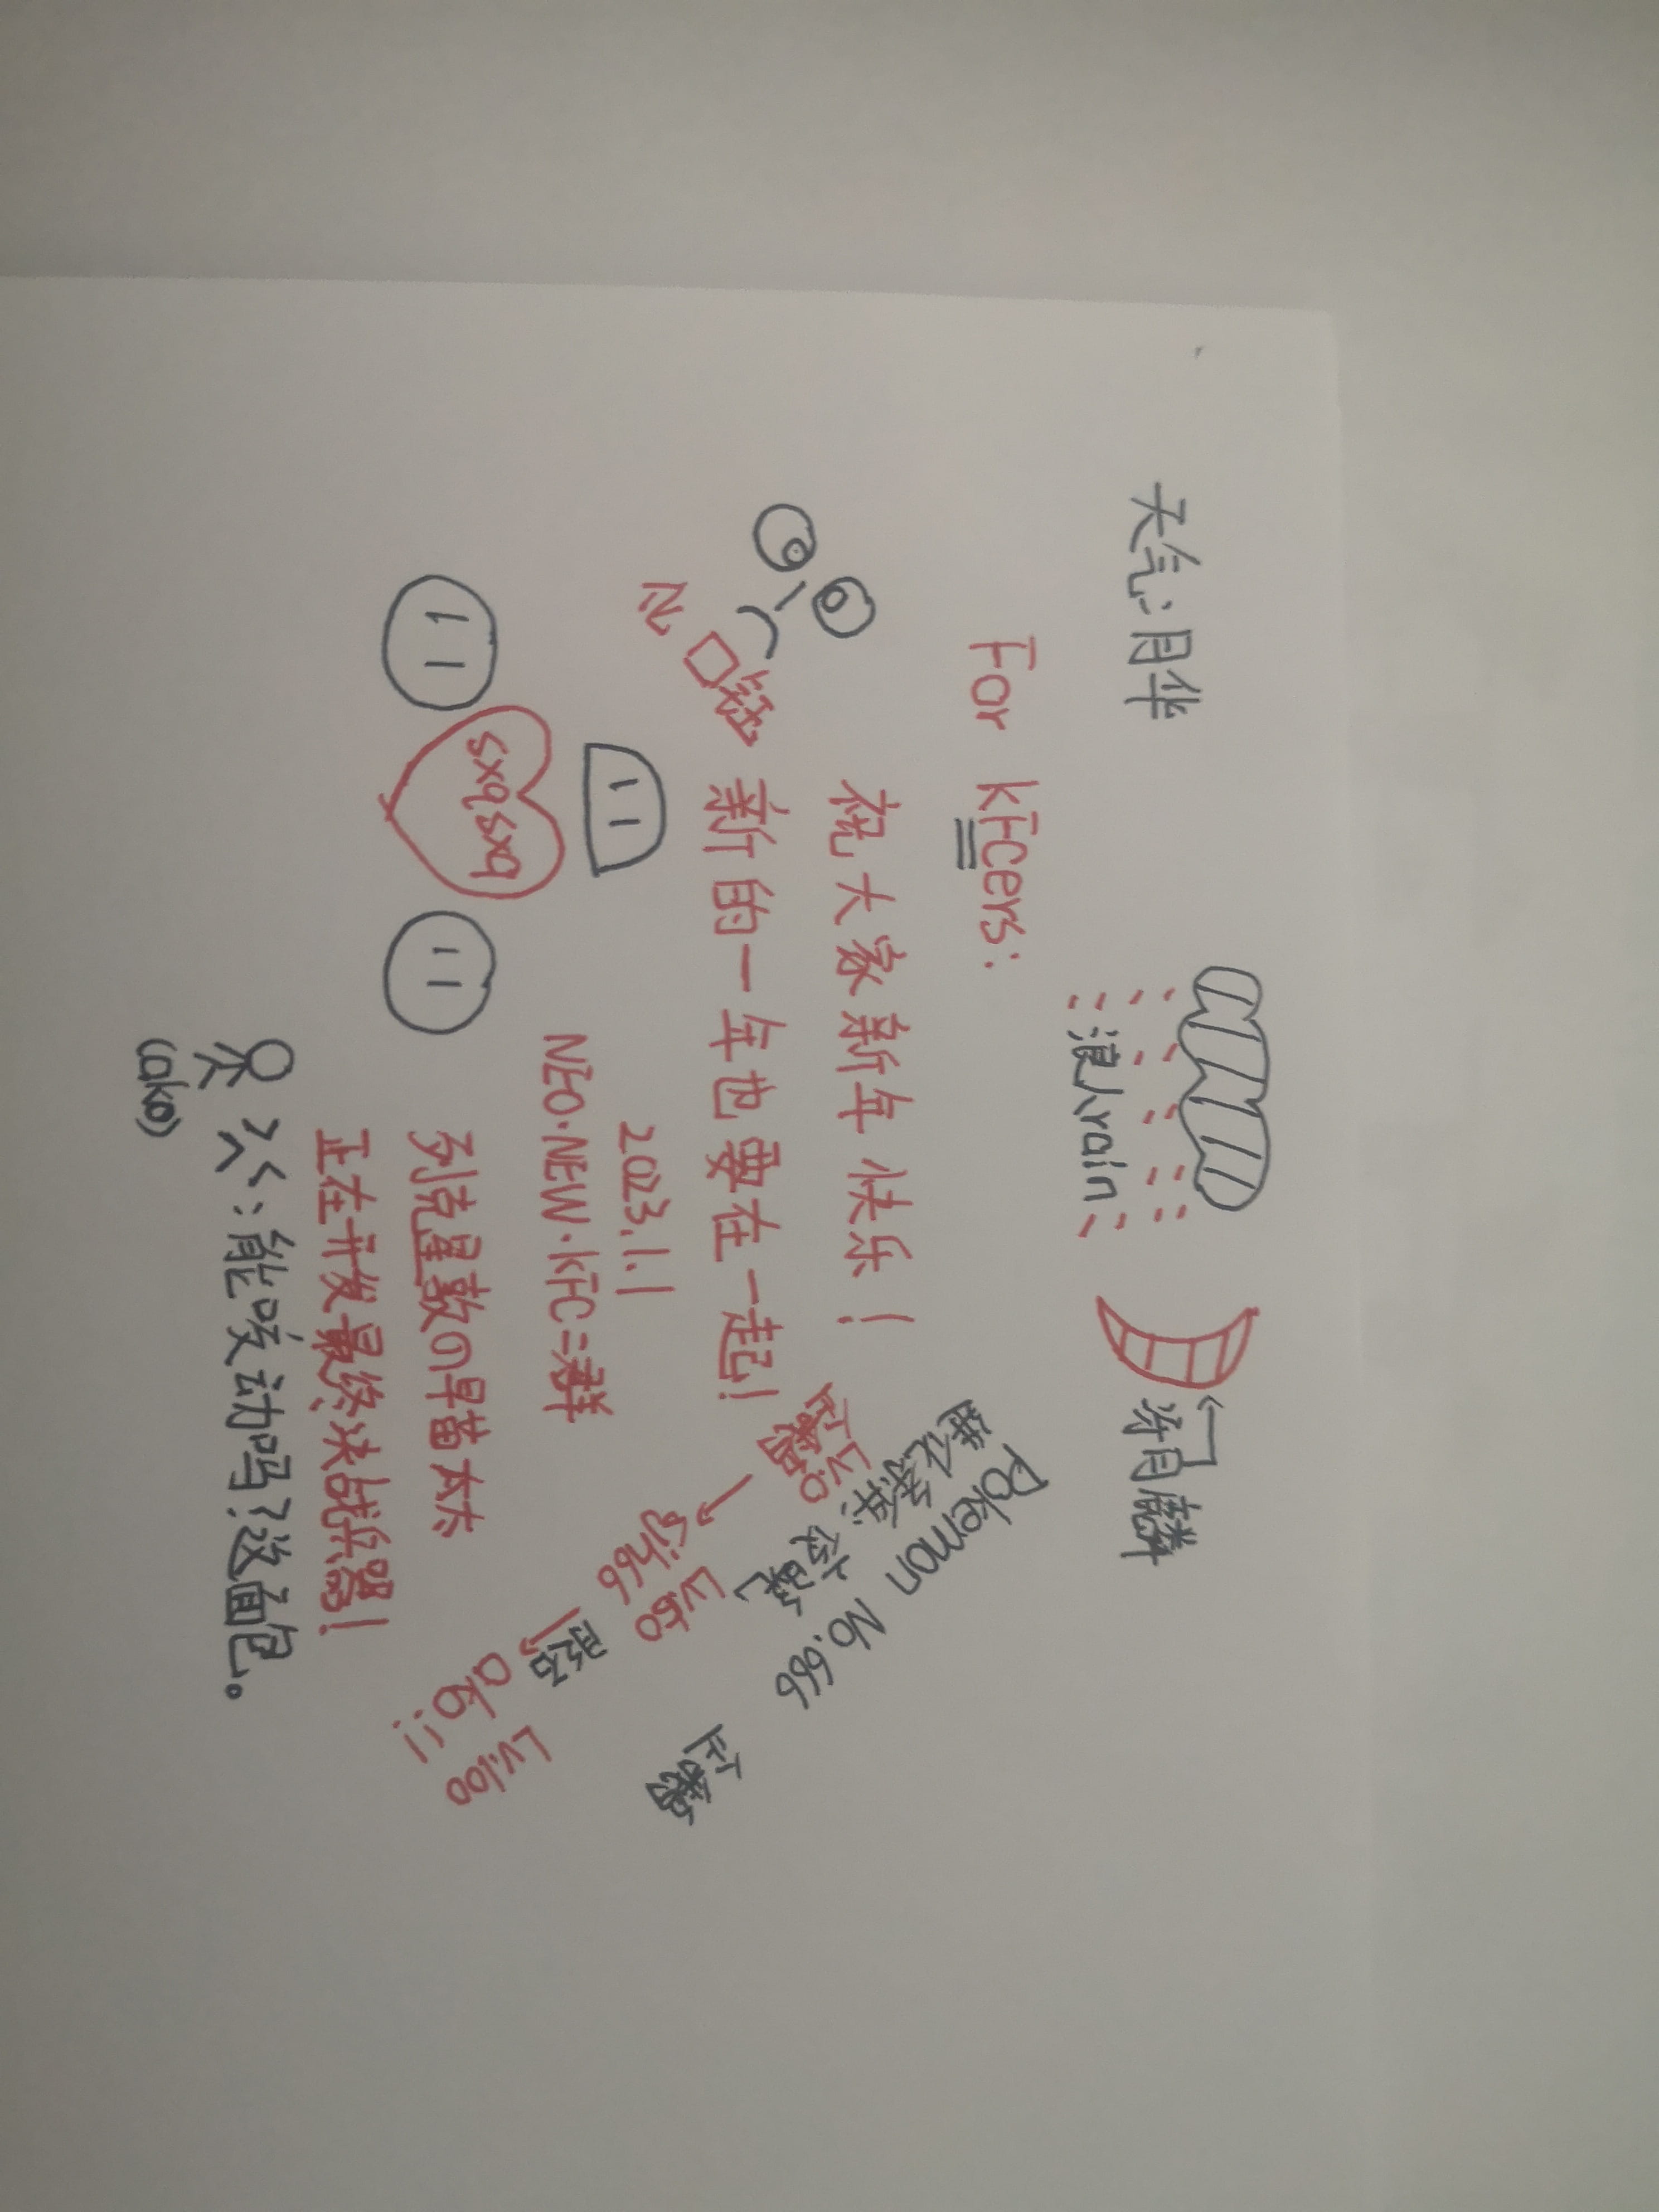 天气:月华
浪人rain
冴月麟
For kFCers:
祝大家新年快乐!
新的一年也要在一起!
2023.1.1
NEO·NEW·KFC=群
sxqsxq
列克星敦の早苗太太
正在开发最终决战兵器!
:能咬动吗?这面包。
(ako)
Pokemon No.666 企鹅
进化条件:夜晚
Lv.0 Lv.60 Lv.100
企鹅→sjh66→ako!!